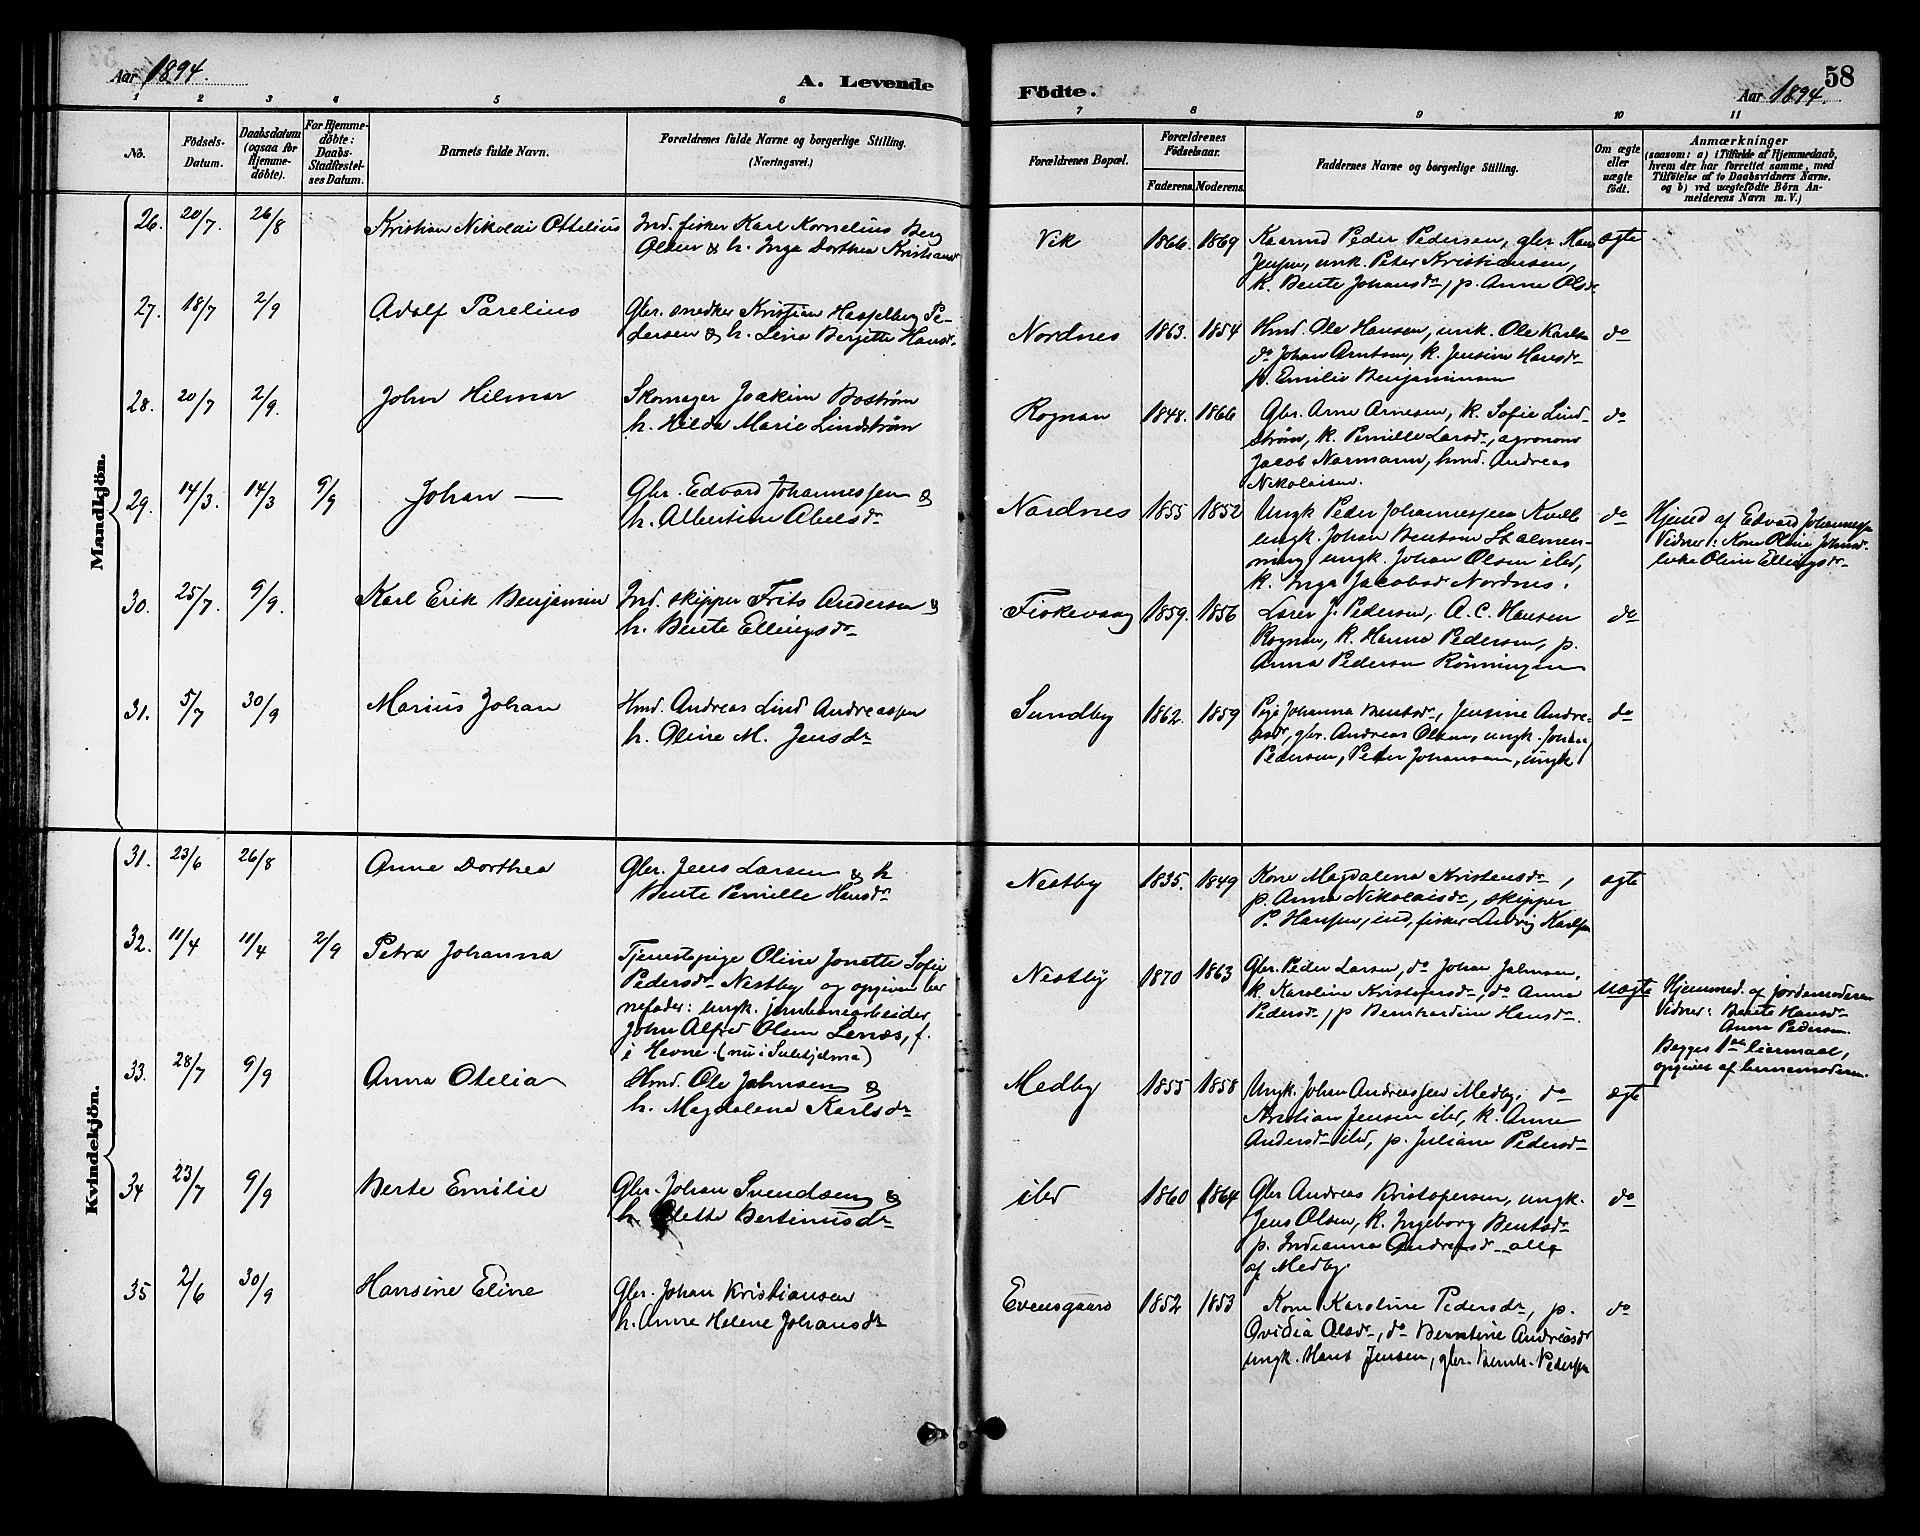 Aar 1894.
A. Levende
Födte.
58
Aar 1894.
1 2 3 4 5 6 7 8 9 10 11
No.
Födsels-
Datum.
Daabsdatum
(ogsaa for
Hjemme-
döbte).
For Hjemme-
döbte:
Daabs-
Stadfæstel-
ses Datum.
Barnets fulde Navn.
Forældrenes fulde Navne og borgerlige Stilling.
(Næringsvei.)
Forældrenes Bopæl.
Forældrenes
Födselsaar.
Faderens. Moderens.
Faddernes Navne og borgerlige Stilling.
Om ægte
eller
uægte
födt.
Anmærkninger
(saasom: a) i Tilfælde af Hjemmedaab,
hvem der har forrettet samme, med
Tilföielse af to Daabsvidners Navne,
og b) ved uægtefödte Börn An-
melderens Navn m. V.)
Mandkjön.
26. 20/7 26/8 Kristian Nikolai Ottelius
Ind. fisker Karl Kornelius Berg
Olsen & h. Inga Dorthea Kristiansdr
Vik 1866. 1869
Kaarmd Peder Pedersen, gbr Hans
Jensen, unk. Peter Kristiansen,
k. Bente Johansdr, p. Anne Olsdr
ægte
27. 18/7 2/9 Adolf Parelius
Gbr. snedker Kristian Hesselberg Pe-
dersen & h. Lina Bergitte Hansdr
Nordnes 1863. 1854
Hmd. Ole Hansen, unk. Ole Karlsen
do Johan Arntsen, k. Jensine Hansdr
p. Emilie Benjaminsen
do
28. 20/7 2/9. John Hilmar
Skomager Joakim Boström
h. Hilda Marie Lindström
Rognan 1844. 1866
Gbr. Arne Arnesen, k. Sofie Lind-
ström, k. Pernille Larsdr, agronom
Jacob Normann, hmd. Andreas
Nikolaisen.
do
29. 14/3. 14/3 9/9 Johan —
Gbr. Edvard Johannessen &
h. Albertine Abelsdr
Nordnes 1855 1852
Ungk Peder Johannessen
ungk. Johan Bentsen Stalmen-
ning, ungk. Johan Olsen ibd,
k. Inga Jacobsdr Nordnes.
do
Hjemd af Edvard Johannessen
Vidner: Kone Oline Johnsd.
Oline Ellingsdr
30. 25/7 9/9. Karl Erik Benjamin
Ind. skipper Frits Andersen &
h. Bente Ellingsdr
Fiskevaag 1859. 1856
Lærer J. Pedersen, A. C. Hansen
Rognan, k. Hanna Pedersen, p.
Anna Pedersen Rönningen
do
31. 5/7 30/9 Marius Johan
Hmd. Andreas Lind Andreassen
h. Oline M. Jensdr
Sundby 1862. 1859
Pige Johanna Bentsdr, Jensine Andre-
asdr, gbr. Andreas Olsen, ungk. Johan
Pedersen, Peder Johansen, ungk
do
Kvindekjön.
31. 23/6 26/8 Anne Dorthea
Gbr. Jens Larsen & h
Bente Pernille Hansdr
Nestby 1835. 1849
Kone Magdalena Kristensdr,
p. Anna Nikolaisdr, skipper
P. Hansen, ind. fisker Ludvig Karlsen
ægte
32. 11/4 11/4 2/9 Petra Johanna
Tjenestepige Oline Jonette Sofie
Pedersdr Nestby og opgiven bar-
nefader: ungk. jernbanearbeider
John Alfred Olsen Lenæs, f.
i Hevne. (nu i Sulitjelma)
Nestby 1870 1863
Gbr. Peder Larsen, do Johan Johnsen,
k. Karoline Kristofersdr, do Anna
Pedersdr, p Bernhardine Hansdr.
uægte
Hjemmed. af jordemoderen
Vidner: Bente Hansdr
Anna Pedersen
Begges 1ste leiermaal,
opgivet af barnemoderen.
33. 28/7 9/9 Anna Otelia
Hmd. Ole Johnsen &
h. Magdalena Karlsdr
Medby 1855 1858
Ungk. Johan Andreassen Medby, do
Kristian Jensen ibd, k. Anne
Andersdr ibd, p. Juliane Pedersdr
ægte
34 23/7 9/9 Berte Emilie
Gbr. Johan Svendsen &
h. Odette Bertinusdr
ibd 1860 1864
Gbr Andreas Kristofersen, ungk.
Jens Olsen, k. Ingeborg Bentsdr
p. Indianna Andreasdr alle
af Medby.
do
35 2/6 30/9 Hansine Eline
Gbr. Johan Kristiansen
h. Anne Helene Johansdr
Evensgaard 1852 1853
Kone Karoline Pedersdr, p.
Ovidia Olsdr, do Berntine Andreasdr
ungk. Hans Jensen, gbr. Bernh. Pedersen
do